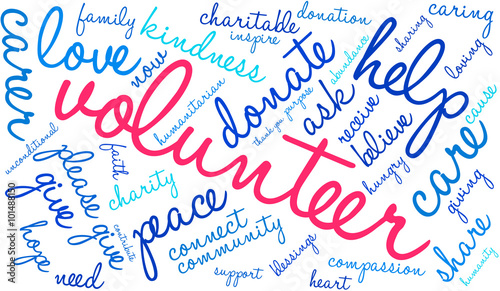 family
charitable
donation
caring
carer
love
kindness
inspire
sharing
loving
now
volunteer
humanitarian
donate
abundance
help
thank you
purpose
ask
receive
believe
cause
unconditional
faith
hungry
care
please give
give
charity
peace
giving
contribute
connect
community
share
hope
need
support
blessings
heart
compassion
Adobe Stock
101488130